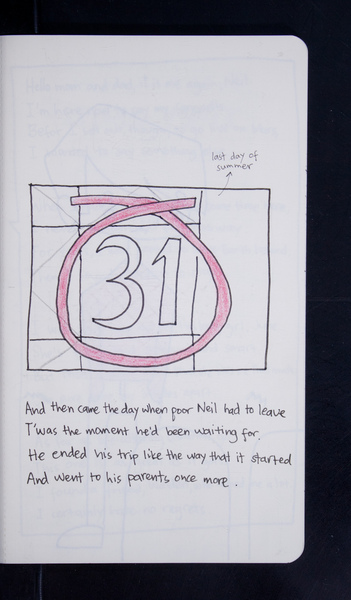 last day of
summer
31
And then came the day when poor Neil had to leave
T'was the moment he'd been waiting for.
He ended his trip like the way that it started
And went to his parents once more.